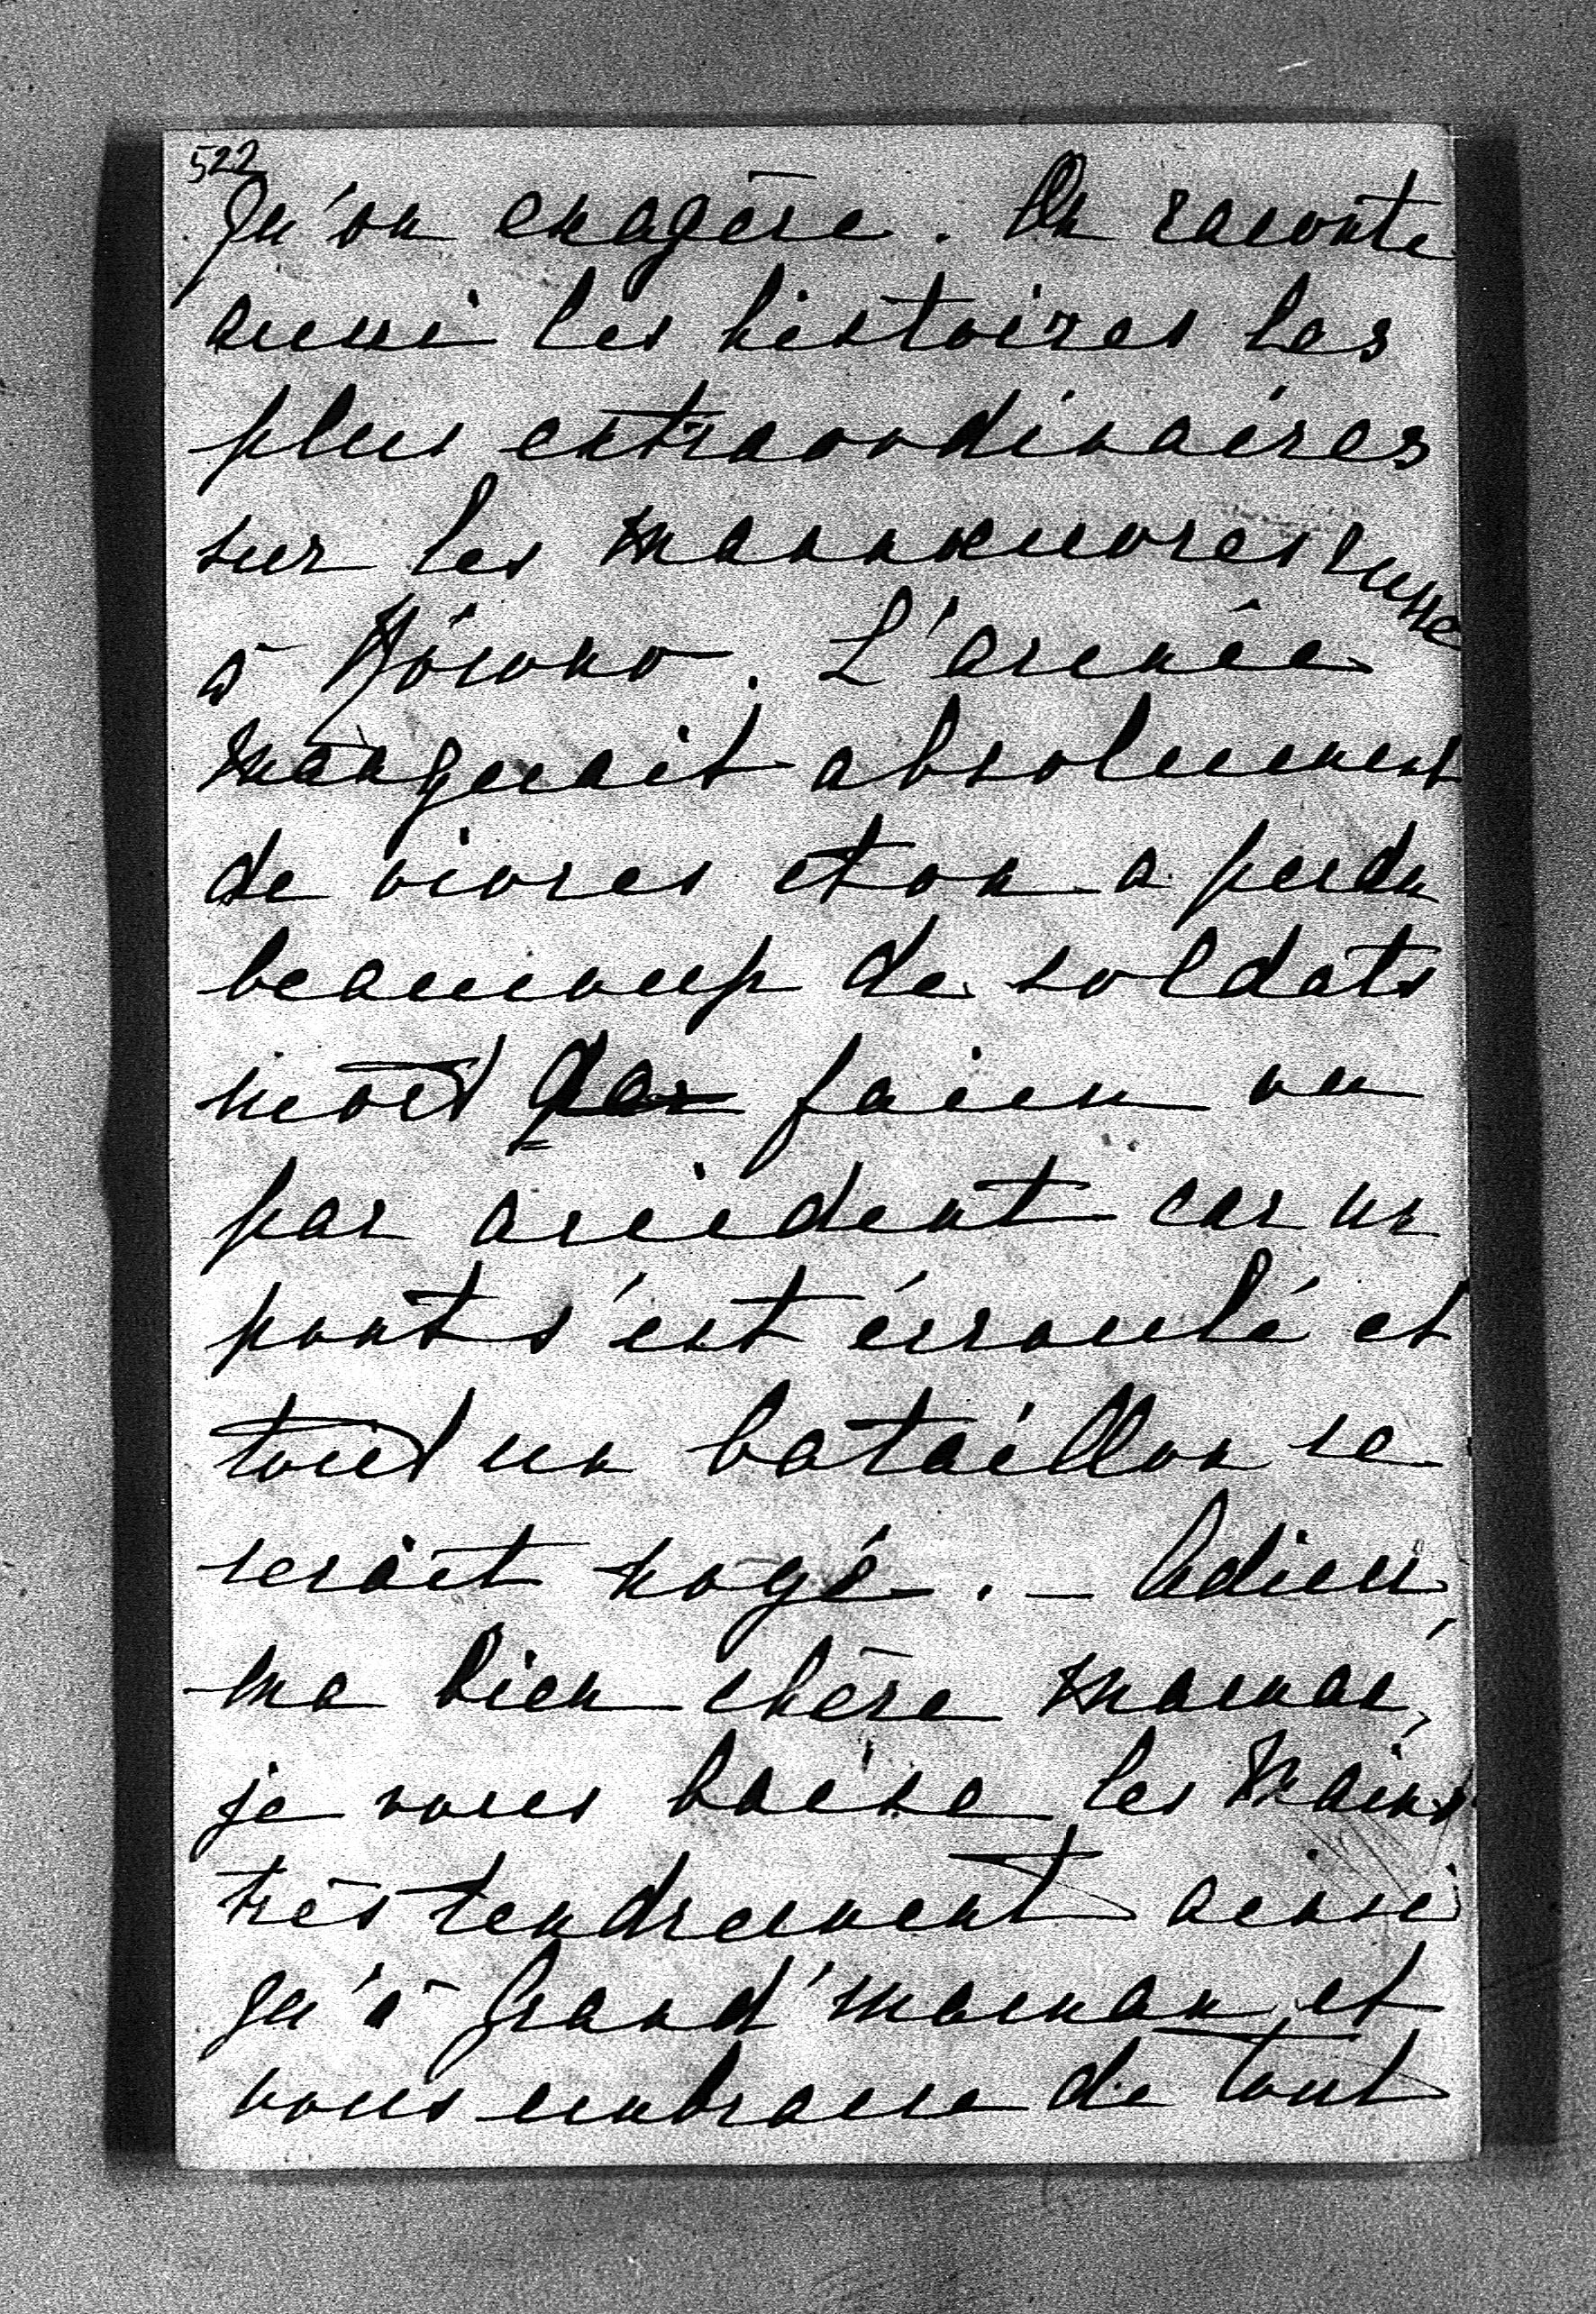 522
qu'on exagère. On raconte
aussi les histoires les
plus extraordinaires
sur les manoeuvres russe
à Kówno. L'armée
manquait absolument
de vivres et on a perdu
beaucoup de soldats
mort de faim ou
par accident car un
pont s'est écroulé et
tout un bataillon se
serait noyé. – Adieu,
ma bien chère maman,
je vous baise les mains
très tendrement ainsi
qu'à Grand'maman et
vous embrasse de tout